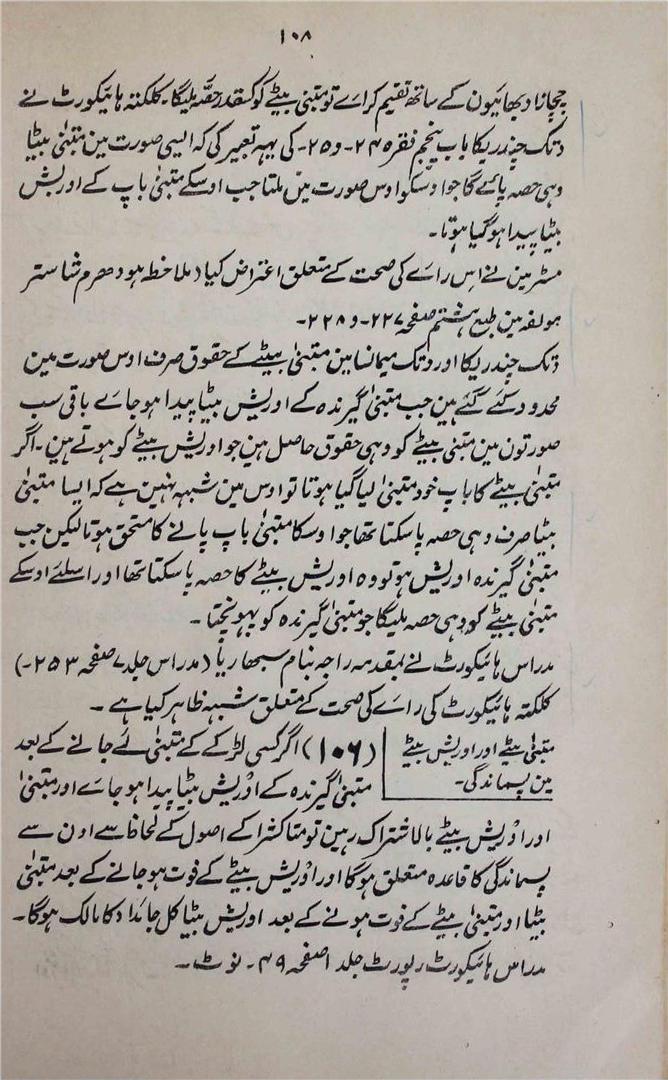 ۱۰۸
چچازاد بھائیون کے ساتھ تقیم کراے تو متبنیٰ بیٹے کو کسقدر حصّہ ملیگا۔ کلکتہ ہائیکورٹ نے
دتک چندریکا باب پنجم فقرہ ۲۴۔ و ۲۵۔ کی یہہ تعبیر کی کہ ایسی صورت مین متبنیٰ بیٹا
وہی حصہ پائے گا جو اوسکو اوس صورت میں ملتا جب اوسکے متبنیٰ باپ کے اوریش
بیٹا پیدا ہو گیا ہوتا۔
مسٹر مین نے اس راے کی صحت کے متعلق اعتراض کیا (ملاحظہ ہو دھرم شاستر
مولفہ مین طبع ہشتم صفحہ ۲۲۷۔ و ۲۲۸۔
دتک چندریکا اور دتک میمانسا مین متبنیٰ بیٹے کے حقوق صرف اوس صورت مین
محدود کئے گئے ہین جب متبنیٰ گیرندہ کے اوریش بیٹا پیدا ہو جاے باقی سب
صورتون مین متبنی بیٹے کو وہی حقوق حاصل ہین جو اوریش بیٹے کو ہوتے ہین۔ اگر
متبنیٰ بیٹے کا باپ خود متبنیٰ لیا گیا ہوتا تو اوس مین شبہہ نہین ہے کہ ایسا متبنیٰ
بیٹا صرف وہی حصہ پا سکتا تھا جو اوسکا متبنیٰ باپ پانے کا مستحق ہوتا لیکن جب
متبنیٰ گیرندہ اوریش ہو تو وہ اوریش بیٹے کا حصہ پا سکتا تھا اور اسلئے اوسکے
متبنیٰ بیٹے کو وہی حصہ ملیگا جو متبنیٰ گیرندہ کو پہونچتا۔
مدراس ہائیکورٹ نے بمقدمہ راجہ بنام سبھاریا (مدراس جلد ۷ صفحہ ۲۵۳۔)
کلکتہ ہائیکورٹ کی راے کی صحت کے متعلق شبہہ ظاہر کیا ہے۔
متبنیٰ بیٹے اور اوریش بیٹے
مین پسماندگی۔
(۱۰۶) اگر کسی لڑکے کے متبنیٰ لئے جانے کے بعد
متبنیٰ گیرندہ کے اوریش بیٹا پیدا ہو جاے اور متبنیٰ
اور اوریش بیٹے بالاشتراک رہین تو متاکشرا کے اصول کے لحاظ سے اون سے
پسماندگی کا قاعدہ متعلق ہوگا اور اوریش بیٹے کے فوت ہو جانے کے بعد متبنیٰ
بیٹا اور متبنیٰ بیٹے کے فوت ہونے کے بعد اوریش بیٹا کل جائداد کا مالک ہوگا۔
مدراس ہائیکورٹ رپورٹ جلد ۱ صفحہ ۴۹۔ نوٹ۔